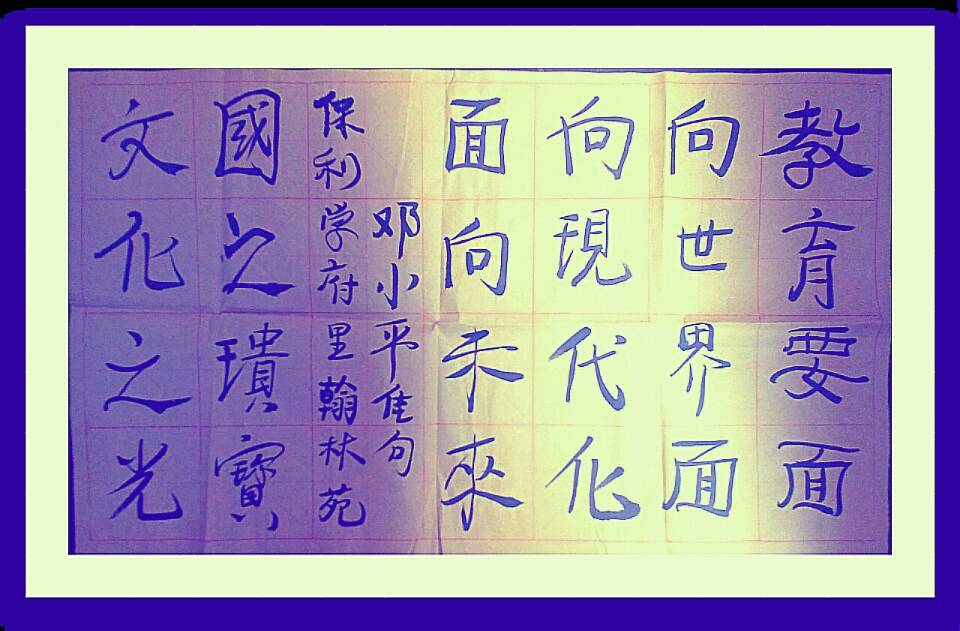 教育要面
向世界面
向現代化
面向未來
邓小平佳句
保利学府里翰林苑
國之璝寶
文化之光